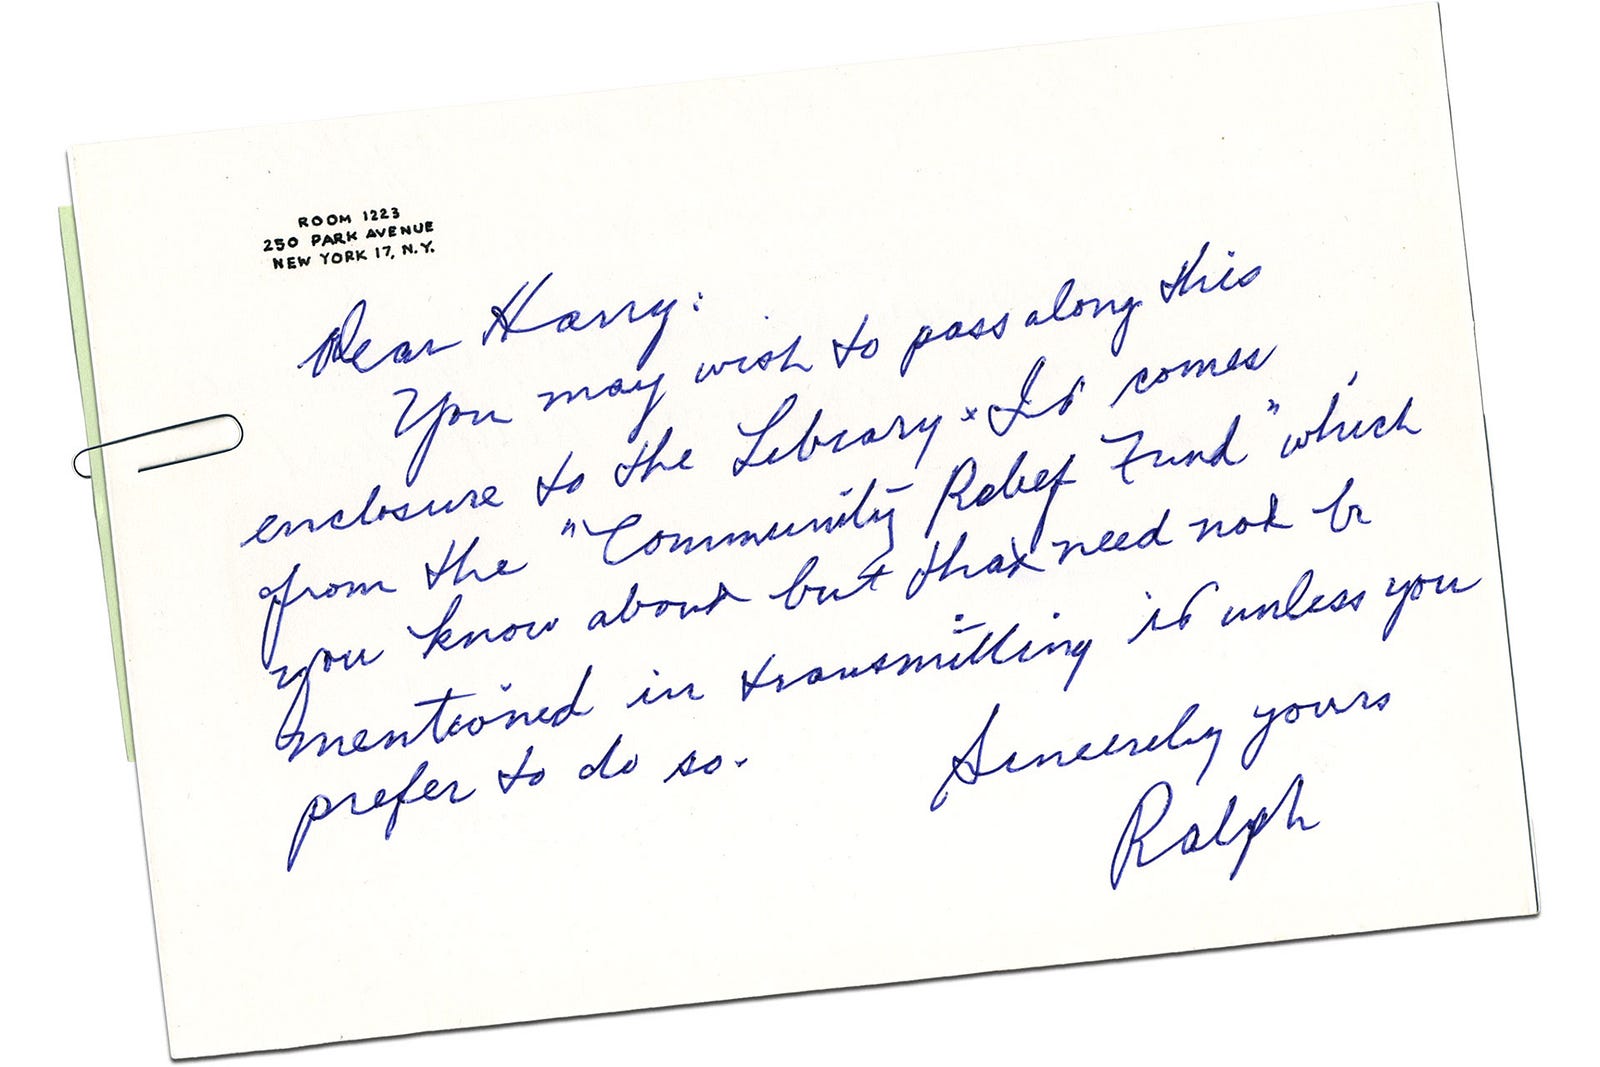 ROOM 1223
250 PARK AVENUE
NEW YORK 17, N.Y.
Dear Harry:
You may wish to pass along this
enclosure to the Library. It comes
from the "Community Relief Fund" which
you know about but that need not be
mentioned in transmitting it unless you
prefer to do so.
Sincerely yours
Ralph